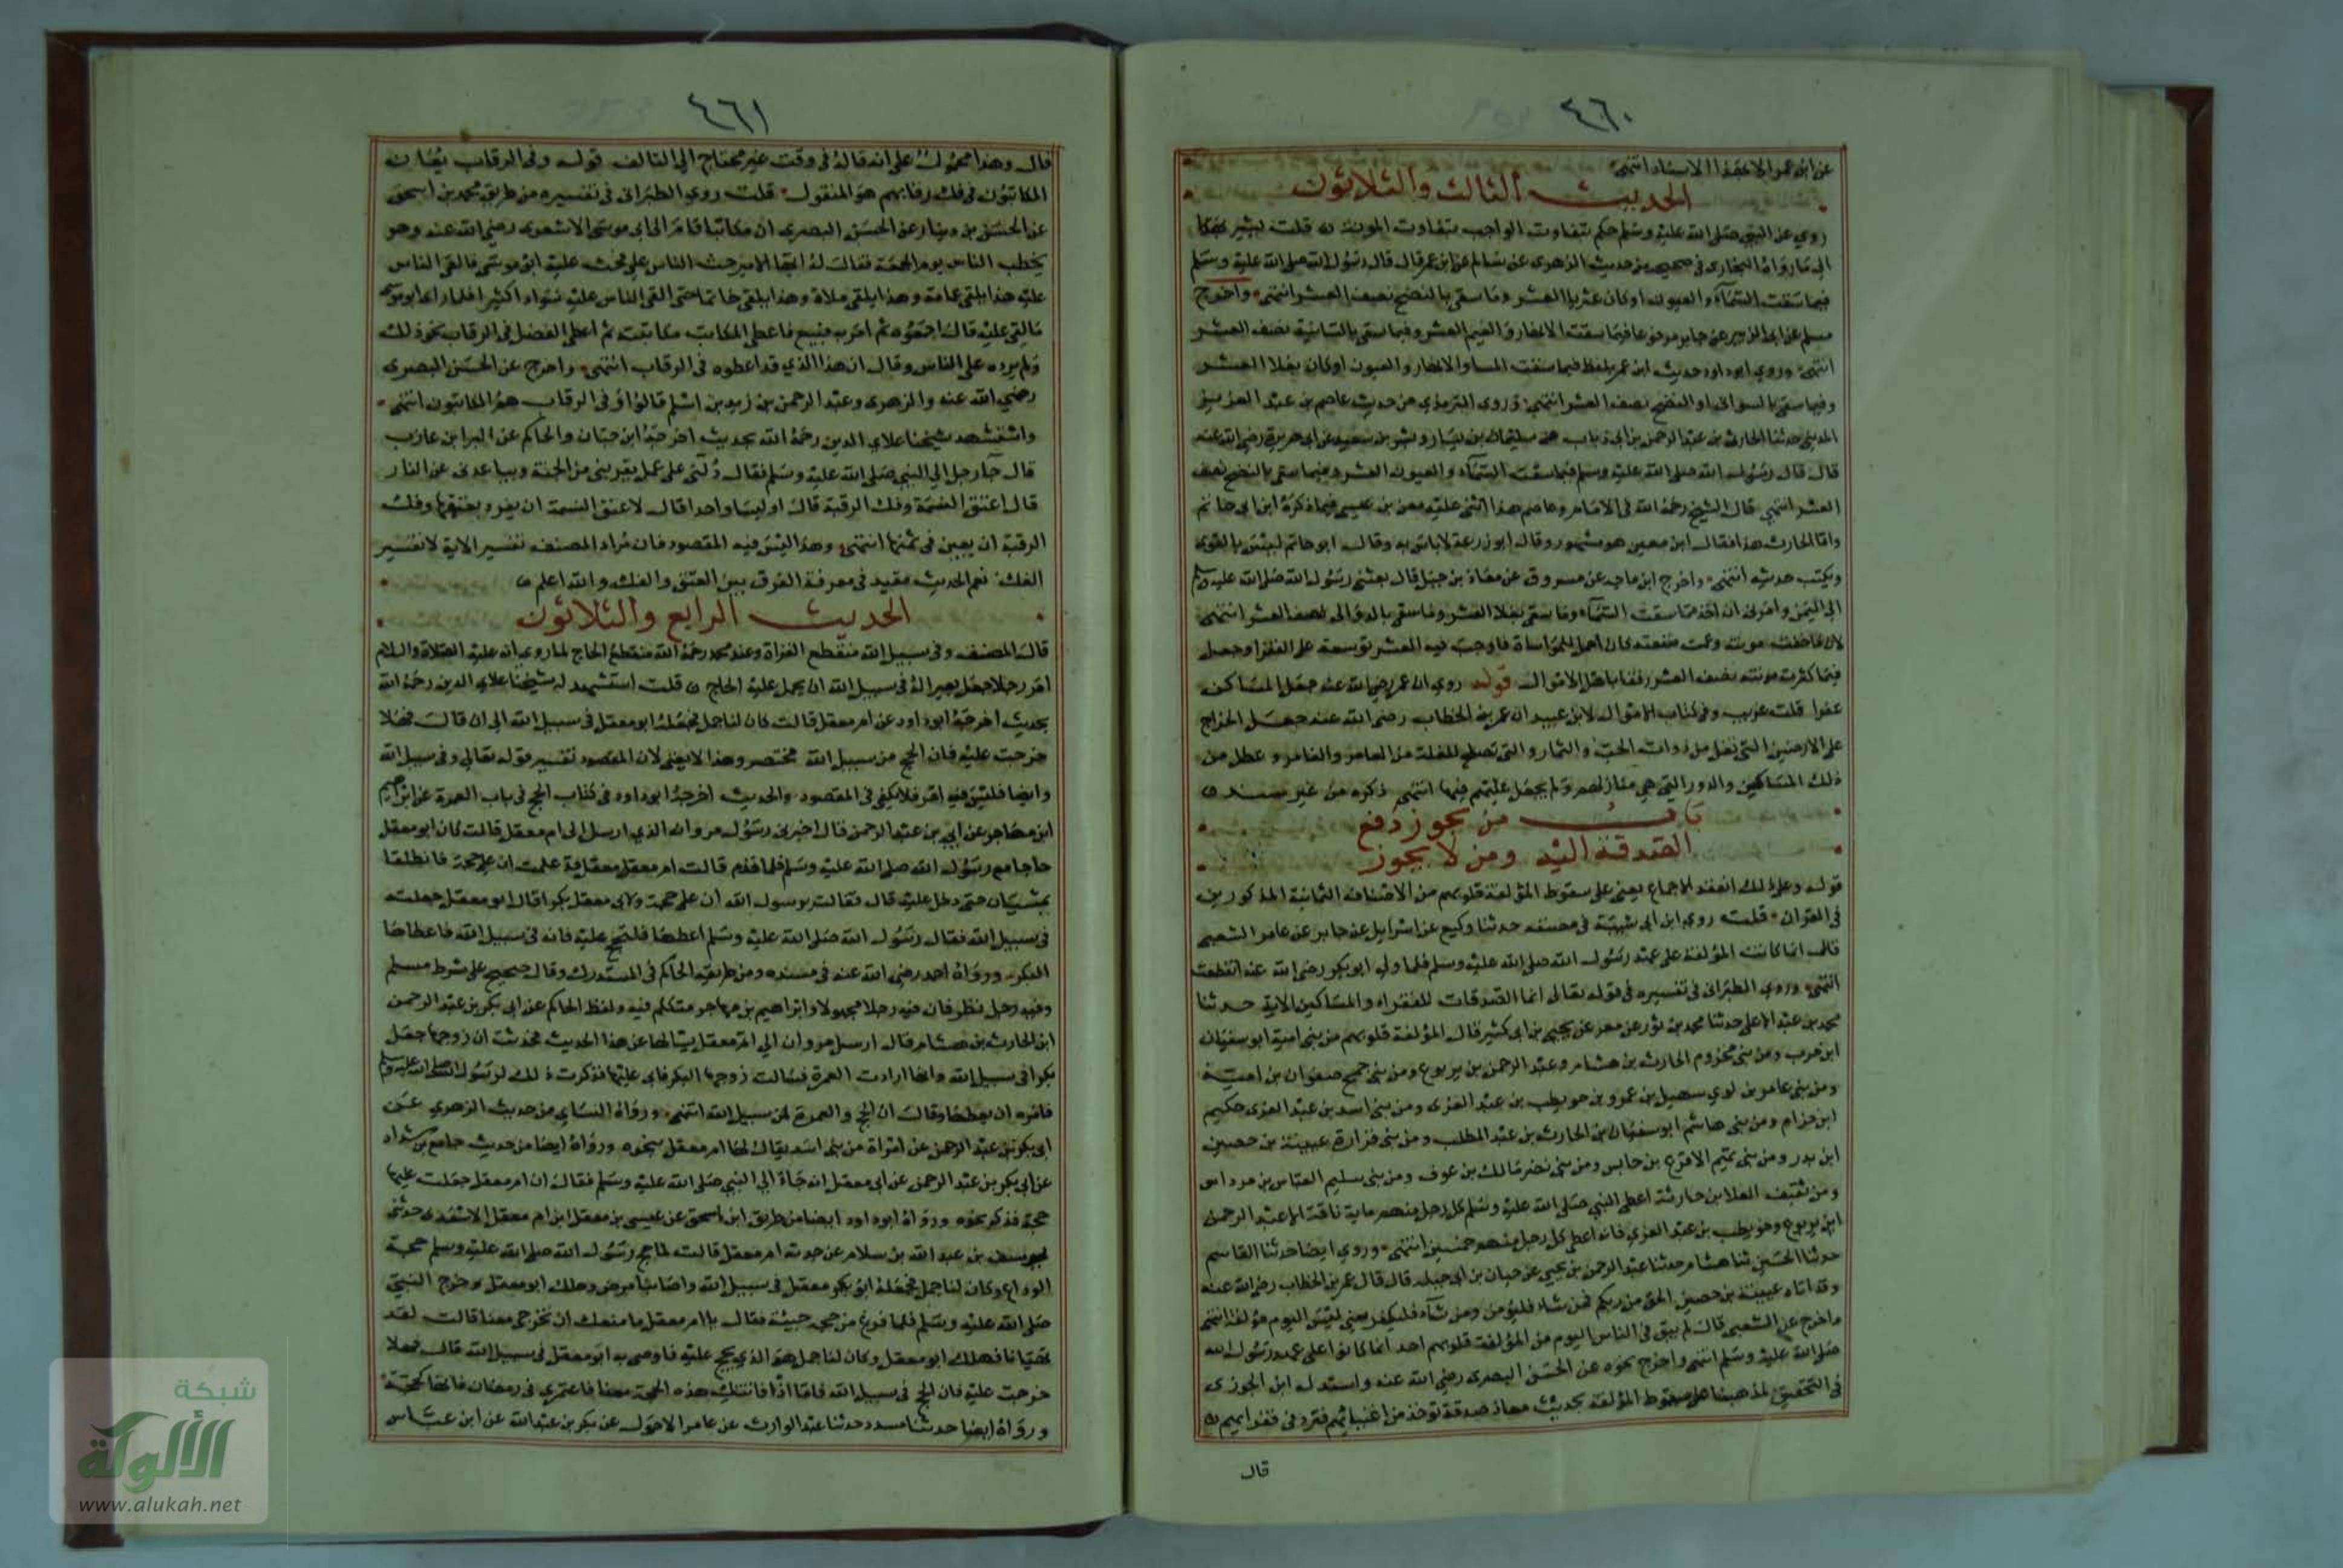 ٤٦٠
عن ابن عمر الا بهذا الاسناد انتهى
الحديث الثالث والثلاثون
روي عن النبي صلى الله عليه وسلم حكم بتفاوت الواجب بتفاوت المونة قلت يشير بهذا
الى ما رواه البخاري في صحيحه من حديث الزهري عن سالم عن ابن عمر قال قال رسول الله صلى الله عليه وسلم
فيما سقت السماء والعيون او كان عثريا العشر وما سقي بالنضح نصف العشر انتهى واخرج
مسلم عن ابي الزبير عن جابر مرفوعا فيما سقت الانهار والغيم العشر وفيما سقي بالسانية نصف العشر
انتهى وروي ابو داود حديث ابن عمر بلفظ فيما سقت السما والانهار والعيون او كان بعلا العشر
وفيما سقي بالسواني او النضح نصف العشر انتهى وروى الترمذي من حديث عاصم بن عبد العزيز
المديني حدثنا الحارث بن عبد الرحمن بن ابي ذباب عن سليمان بن يسار وبسر بن سعيد عن ابي هريرة رضي الله عنه
قال قال رسول الله صلى الله عليه وسلم فيما سقت السماء والعيون العشر وفيما سقي بالنضح نصف
العشر انتهى قال الشيخ رحمه الله في الامام وعاصم هذا اثنى عليه معن بن عيسى فيما ذكره ابن ابي حاتم
واما الحارث هذا فقال ابن معين هو مشهور وقال ابو زرعة لا باس به وقال ابو حاتم ليس بالقوي
ويكتب حديثه انتهى واخرج ابن ماجه عن مسروق عن معاذ بن جبل قال بعثني رسول الله صلى الله عليه وسلم
الى اليمن وامرني ان اخذ مما سقت السماء وما سقي بعلا العشر وما سقي بالدوالي نصف العشر انتهى
لان ما خفت مونته وعمت منفعته كان احمل للمواساة فاوجب فيه العشر توسعة على الفقرا وجعل
فيما كثرت مونته نصف العشر رفقا باهل الاموال قوله روي ان عمر رضي الله عنه جعل المساكن
عفوا قلت غريب وفي كتاب الاموال لابي عبيد ان عمر بن الخطاب رضي الله عنه جعل الخراج
على الارضين التي تغل من ذوات الحب والثمار والتي تصلح للغلة من العامر والغامر وعطل من
ذلك المساكين والدور التي هي منازلهم ولم يجعل عليهم فيها انتهى ذكره من غير سند
باب من يجوز دفع
الصدقة اليه ومن لا يجوز
قوله وعلى ذلك انعقد الاجماع يعني على سقوط المؤلفة قلوبهم من الاصناف الثمانية المذكورين
في القران قلت روي ابن ابي شيبة في مصنفه حدثنا وكيع عن اسرايل عن جابر عن عامر الشعبي
قال انما كانت المؤلفة على عهد رسول الله صلى الله عليه وسلم فلما ولي ابو بكر رضي الله عنه انقطعت
انتهى وروي الطبراني في تفسيره في قوله تعالى انما الصدقات للفقراء والمساكين الاية حدثنا
محمد بن عبد الاعلى حدثنا محمد بن ثور عن معمر عن يحيى بن ابي كثير قال المؤلفة قلوبهم من بني امية ابو سفيان
ابن حرب ومن بني مخزوم الحارث بن هشام وعبد الرحمن بن يربوع ومن بني جمح صفوان بن امية
ومن بني عامر بن لوي سهيل بن عمرو بن حويطب بن عبد العزى ومن بني اسد بن عبد العزى حكيم
ابن حزام ومن بني هاشم ابو سفيان بن الحارث بن عبد المطلب ومن بني فزارة عيينة بن حصين
ابن بدر ومن بني تميم الاقرع بن حابس ومن بني نضر مالك بن عوف ومن بني سليم العباس بن مرداس
ومن ثقيف العلا بن حارثة اعطى النبي صلى الله عليه وسلم كل رجل منهم ماية ناقة الا عبد الرحمن
ابن يربوع وحويطب بن عبد العزى فانه اعطى كل رجل منهم خمسين انتهى وروي ايضا حدثنا القاسم
حدثنا الحسين ثنا هشام حدثنا عبد الرحمن بن يحيى عن حبان بن ابي جبلة قال قال عمر بن الخطاب رضي الله عنه
وقد اتاه عيينة بن حصين الحق من ربكم فمن شاء فليؤمن ومن شاء فليكفر يعني ليس اليوم مؤلفة انتهى
واخرج عن الشعبي قال لم يبق في الناس اليوم من المؤلفة قلوبهم احد انما كانوا على عهد رسول الله
صلى الله عليه وسلم انتهى واخرج نحوه عن الحسن البصري رضي الله عنه واستدل ابن الجوزي
في التحقيق لمذهبنا على سقوط المؤلفة بحديث معاذ صدقة توخذ من اغنيائهم فترد في فقرائهم
قال
٤٦١
قال وهذا محمول على انه قاله في وقت غير محتاج الى التالف قوله وفي الرقاب يعان
المكاتبون في فك رقابهم هو المنقول قلت روي الطبراني في تفسيره من طريق محمد بن اسحق
عن الحسن بن دينار عن الحسن البصري ان مكاتبا قام الى ابي موسى الاشعري رضي الله عنه وهو
يخطب الناس يوم الجمعة فقال له ايها الامير حث الناس علي فحث عليه ابو موسى فالقى الناس
عليه هذا يلقي عمامة وهذا يلقي ملاة وهذا يلقي خاتما حتى القى الناس عليه سوادا كثيرا فلما راى ابو موسى
ما القي عليه قال اجمعوه ثم امر به فبيع فاعطى المكاتب مكاتبته ثم اعطى الفضل في الرقاب نحو ذلك
ولم يرده على الناس وقال ان هذا الذي قد اعطوه في الرقاب انتهى واخرج عن الحسن البصري
رضي الله عنه والزهري وعبد الرحمن بن زيد بن اسلم قالوا وفي الرقاب هم المكاتبون انتهى
واستشهد شيخنا علاي الدين رحمه الله بحديث اخرجه ابن حبان والحاكم عن البرا بن عازب
قال جاء رجل الى النبي صلى الله عليه وسلم فقال دلني على عمل يقربني من الجنة ويباعدني عن النار
قال اعتق النسمة وفك الرقبة قال اوليسا واحدا قال لا عتق النسمة ان يفرد بعتقها وفك
الرقبة ان يعين في ثمنها انتهى وهذا ليس فيه المقصود فان مراد المصنف تفسير الاية لا تفسير
الفك نعم الحديث مفيد في معرفة الفرق بين العتق والفك والله اعلم
الحديث الرابع والثلاثون
قال المصنف وفي سبيل الله منقطع الغزاة وعند محمد رحمه الله منقطع الحاج لما روي انه عليه الصلاة والسلام
امر رجلا جعل بعيرا له في سبيل الله ان يحمل عليه الحاج قلت استشهد له شيخنا علاي الدين رحمه الله
بحديث اخرجه ابو داود عن ام معقل قالت كان لنا جمل فجعله ابو معقل في سبيل الله الى ان قال فهلا
خرجت عليه فان الحج من سبيل الله مختصر وهذا لا يغني لان المقصود تفسير قوله تعالى وفي سبيل الله
وايضا فليس فيه امر فلا يكفي في المقصود والحديث اخرجه ابو داود في كتاب الحج في باب العمرة عن ابراهيم
ابن مهاجر عن ابي بن عبد الرحمن قال اخبرني رسول مروان الذي ارسل الى ام معقل قالت كان ابو معقل
حاجا مع رسول الله صلى الله عليه وسلم فلما قدم قالت ام معقل معقلية علمت ان علي حجة فانطلقا
يمشيان حتى دخل عليه قال فقالت يرسول الله ان علي حجة ولابي معقل بكرا قال ابو معقل جعلته
في سبيل الله فقال رسول الله صلى الله عليه وسلم اعطها فلتحج عليه فانه في سبيل الله فاعطاها
البكر ورواه احمد رضي الله عنه في مسنده ومن طريقه الحاكم في المستدرك وقال صحيح على شرط مسلم
وفيه رجل نظر فان فيه رجلا مجهولا وابراهيم بن مهاجر متكلم فيه ولفظ الحاكم عن ابي بكر بن عبد الرحمن
ابن الحارث بن هشام قال ارسل مروان الى ام معقل يسالها عن هذا الحديث فحدثت ان زوجها جعل
بكرا في سبيل الله وانها ارادت العمرة فسالت زوجها البكر فابى عليها فذكرت ذلك لرسول الله صلى الله عليه وسلم
فامره ان يعطها وقال ان الحج والعمرة لمن سبيل الله انتهى ورواه النساي من حديث الزهري عن
ابي بكر بن عبد الرحمن عن امراة من بني اسد يقال لها ام معقل بنحوه ورواه ايضا من حديث جامع بن شداد
عن ابي بكر بن عبد الرحمن عن ابي معقل انه جاء الى النبي صلى الله عليه وسلم فقال ان ام معقل جعلت عليها
حجة فذكر نحوه ورواه ابو داود ايضا من طريق ابن اسحق عن عيسى بن معقل ابن ام معقل الاسدي حدثني
يوسف بن عبد الله بن سلام عن جدته ام معقل قالت لما حج رسول الله صلى الله عليه وسلم حجة
الوداع وكان لنا جمل فجعله ابو بكر معقل في سبيل الله واصابنا مرض وهلك ابو معقل وخرج النبي
صلى الله عليه وسلم فلما فرغ من حجه جيئته فقال يا ام معقل ما منعك ان تخرجي معنا قالت لقد
تهيانا فهلك ابو معقل وكان لنا جمل هو الذي يحج عليه فاوصى به ابو معقل في سبيل الله قال فهلا
خرجت عليه فان الحج في سبيل الله فاما اذا فاتتك هذه الحجة معنا فاعتمري في رمضان فانها كحجة
ورواه ايضا حدثنا مسدد حدثنا عبد الوارث عن عامر الاحول عن بكر بن عبد الله عن ابن عباس
شبكة
الألوكة
www.alukah.net